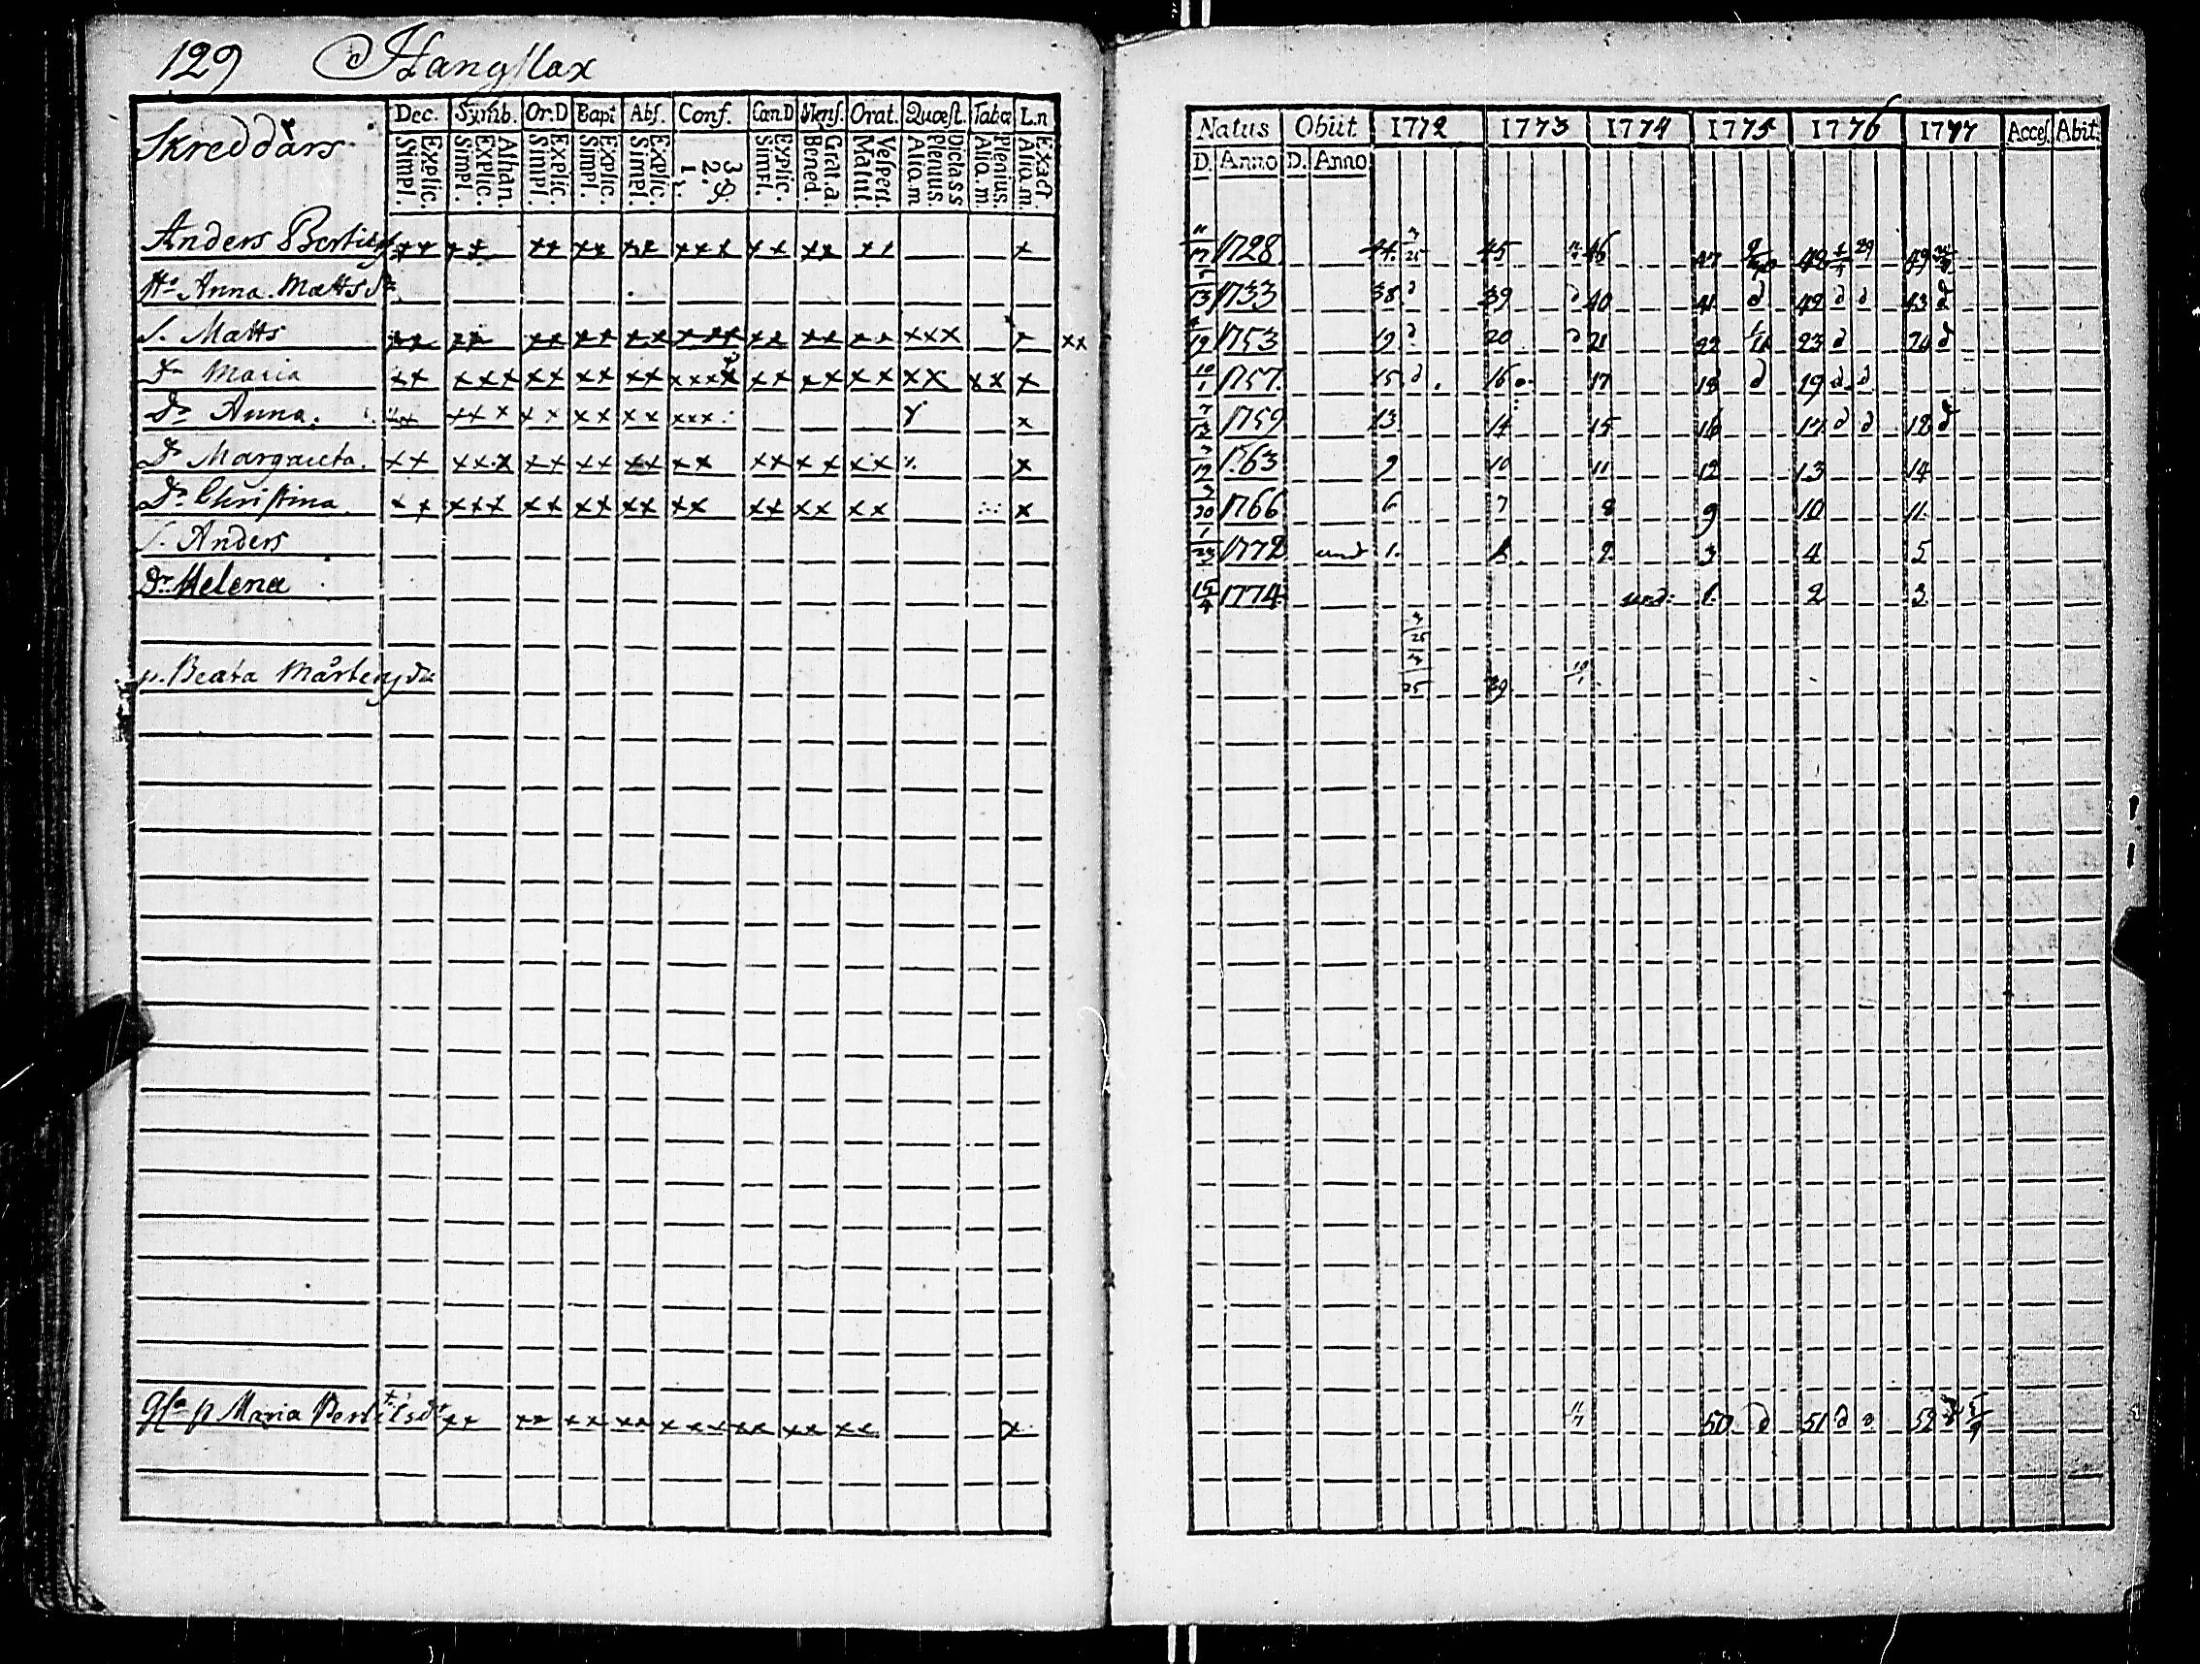 129 Hangslax
Skreddars
Dec. Symb. Or.D Bapt Abs. Conf. Can.D Mens. Orat. Quæst. Tabæ L.n
Explic. Simpl. Athan. Explic. Simpl. Explic. Simpl. Explic. Simpl. Explic. Simpl. 3. 2. 1. Explic. Simpl. Grat.a. Bened. Vespert. Matut. Dicta ss Plenius. Aliq.m Plenius. Aliq.m. Exact Aliq.m.
Natus Obiit 1772 1773 1774 1775 1776 1777 Access. Abit.
D. Anno D. Anno
Anders xx xx xx xx xx xxx xx xx xx x 1728 44. 45 46 47 48 49
Hu Anna Matts dr 1733 38. d 39 d 40 41 d 42 d d 43 d
S. Matts xx xx xx xx xx xxx xx xx xx xxx x xx 1753 19 d 20 d 21 22 23 d 24 d
Dr Maria xx xxx xx xx xx xxxx xx xx xx xx xx x 1757. 15 d. 16 17 18 d 19 d d
Dr Anna. xx xxx xx xx xx xxx x 1759 13 14 15 16 17 d d 18 d
Dr Margareta. xx xxx xx xx xx xx xx xx xx x 1763 9 10 11 12 13 14
Dr Christina. xx xxx xx xx xx xx xx xx xx x 1766 6 7 8 9 10 11.
S. Anders 1772 und 1. 2. 3 4 5
Dr. Helena 15/4 1774 und. 1. 2 3
p. Beata Mårtens dr 39
Maria Bertils dr xx xx xx xx xxx xx xx xx x. 50 d 51 d 52